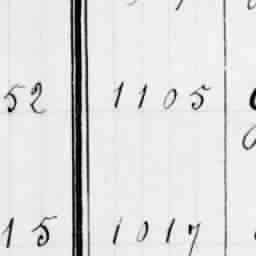 52 1105
15 1017